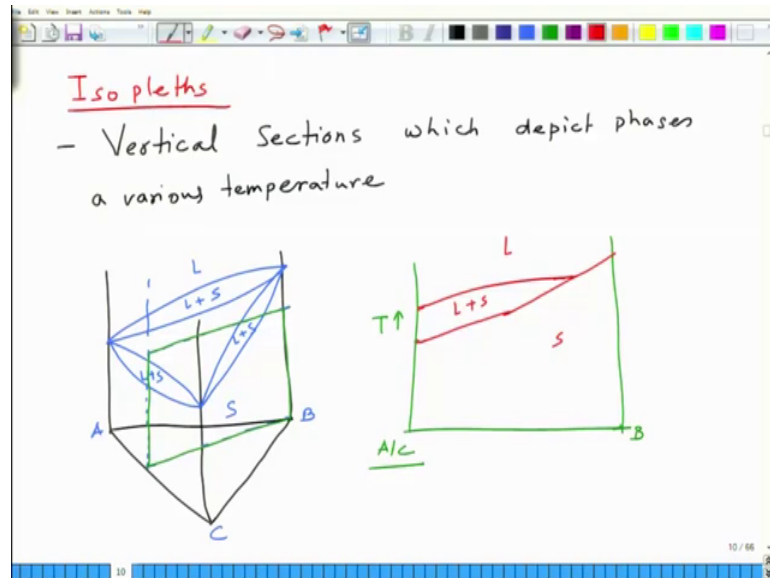 File Edit View Insert Actions Tools Help
Isopleths
- Vertical Sections which depict phases
a various temperature
L
L+S
L+S
L+S
S
A
B
C
L
T↑
L+S
S
A/C
B
10 / 66
10